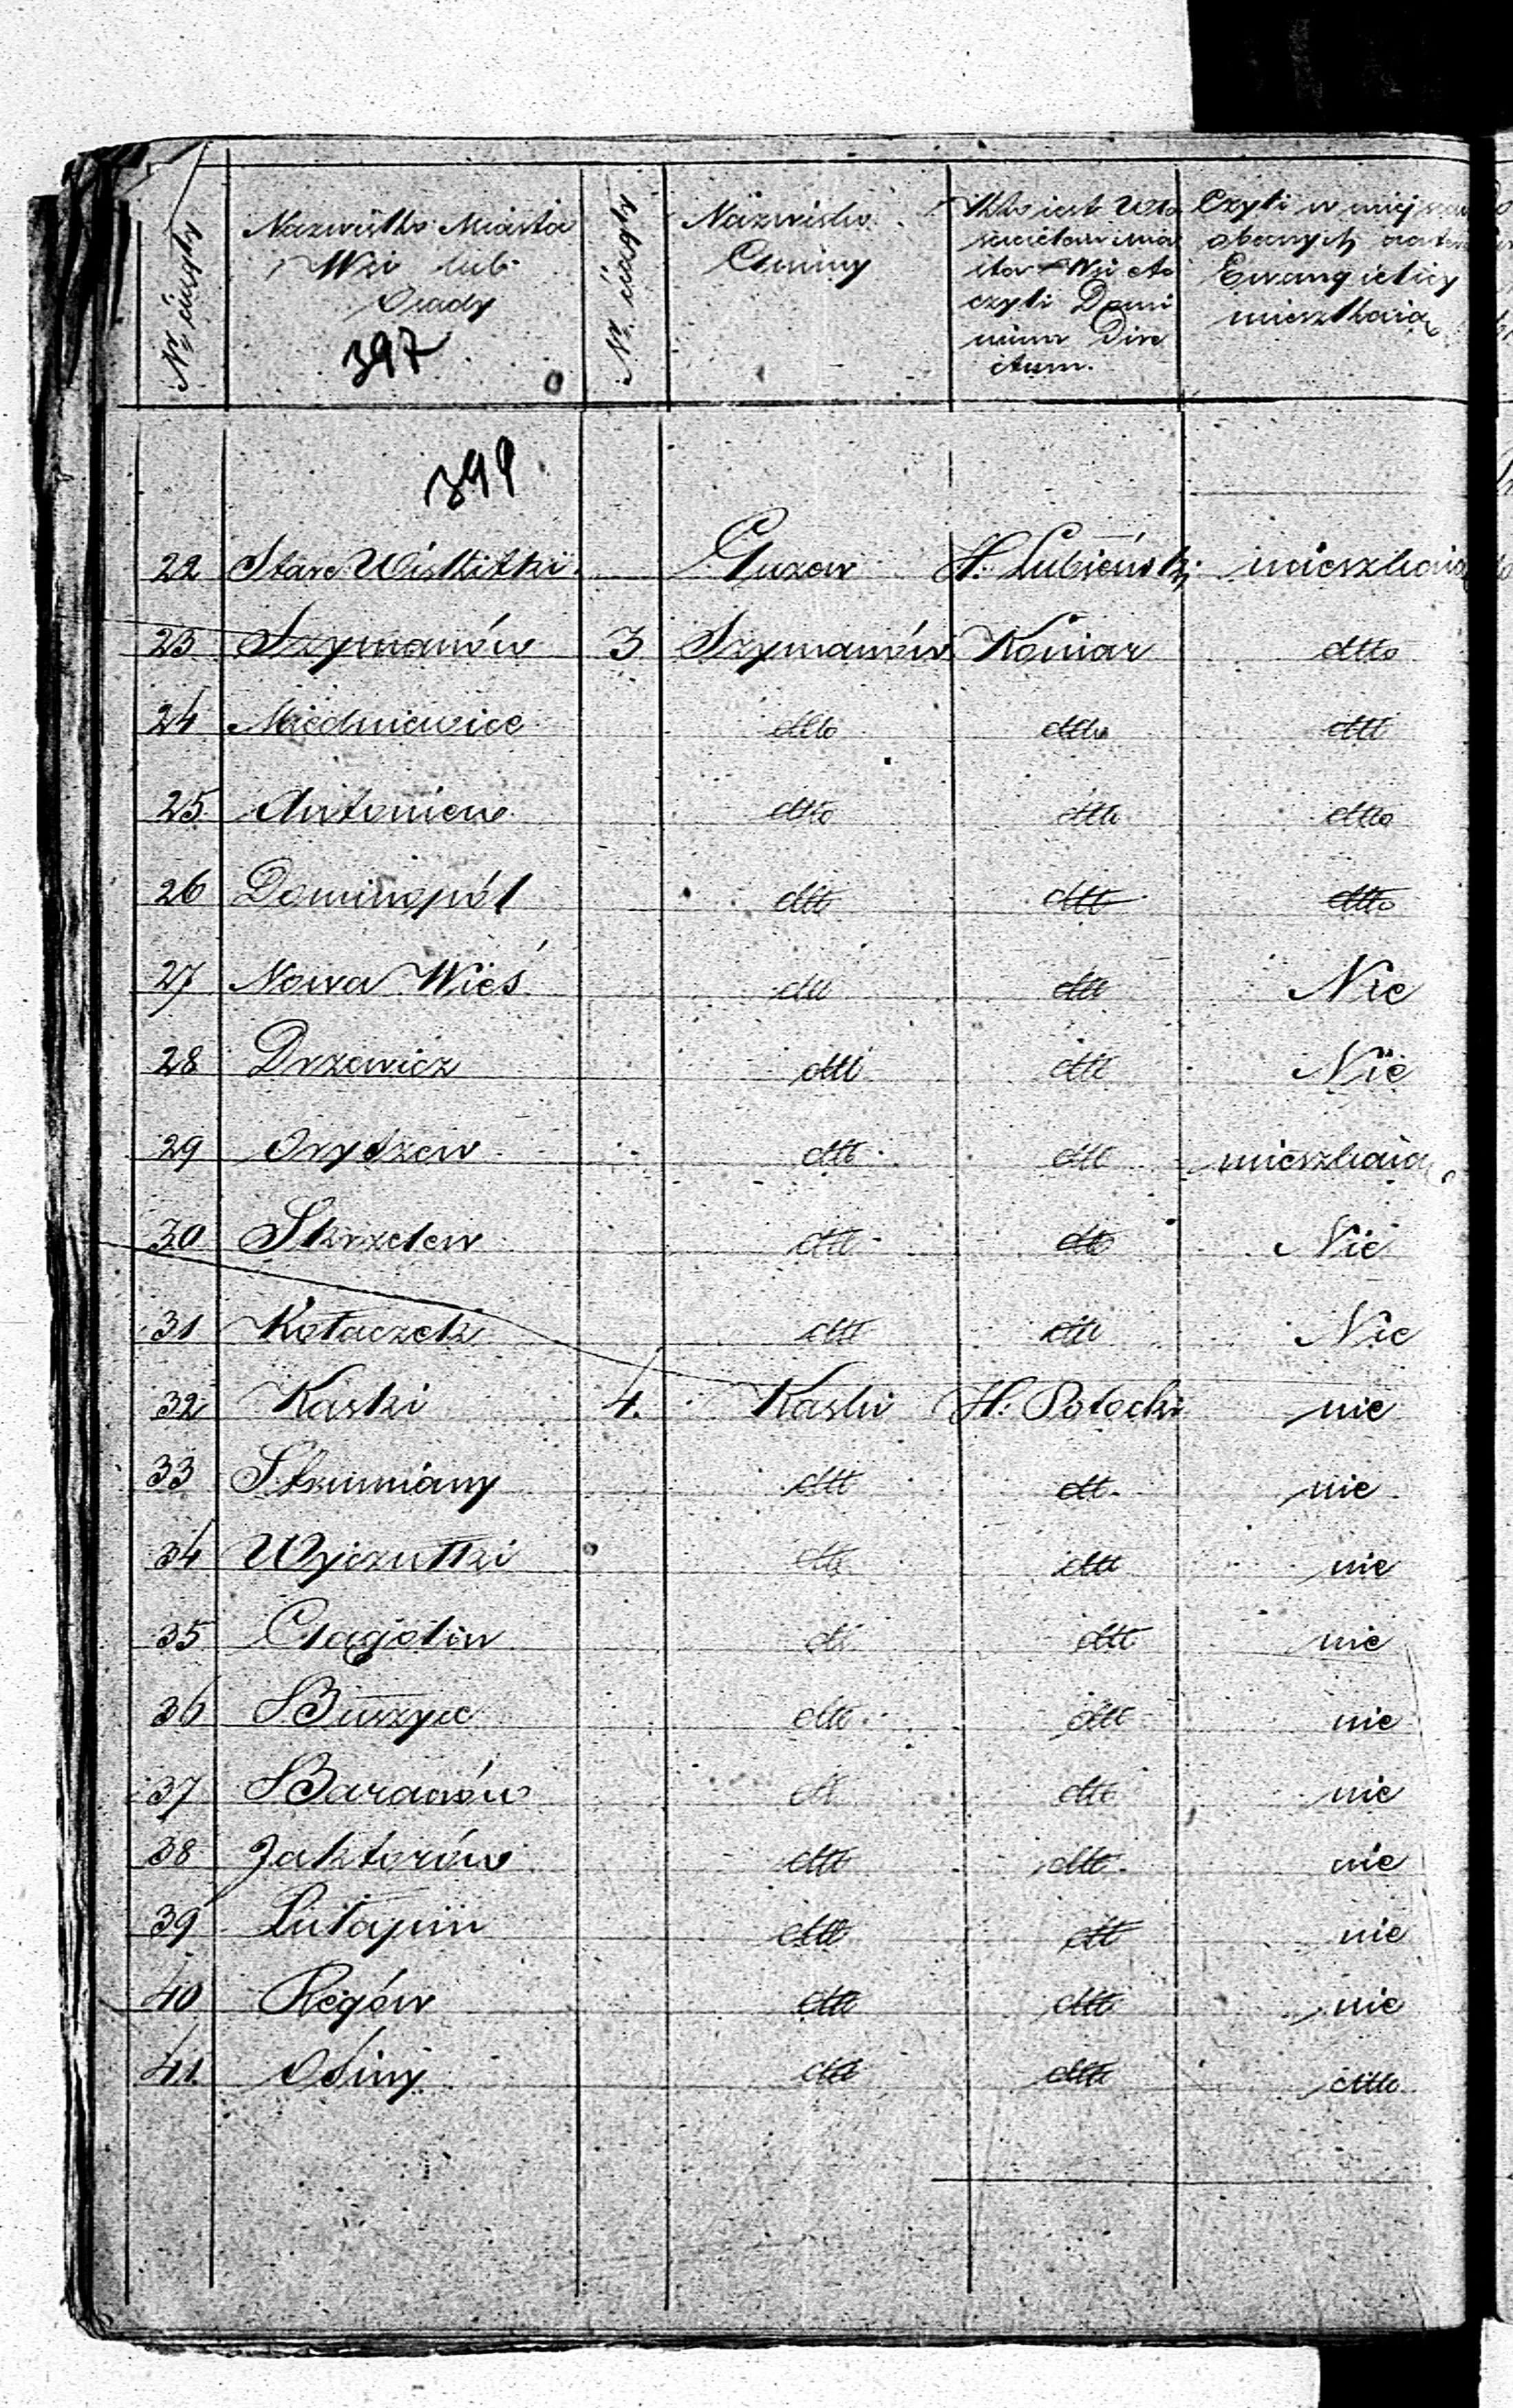 Nr ciągły
Nazwisko Miasta
Wsi lub
Osady
397
Nr ciągły
Nazwisko
Gminy
Kto iest Wła
ścicielem mia
sta Wsi etc
czyli Domi
nium Dire
ctum.
Czyli w miejscach
obecnych
Ewangielicy
mieszkaią
399
22 Stare Wiskitki Guzow H. Lubieński mieszkaią
23 Szymanów 3 Szymanów Koniar dtto
24 Miedniewice dtto dtto dtto
25 Antoniew dtto dtto dtto
26 Dominopól dtto dtto dtto
27 Nowa Wieś dtto dtto Nie
28 Drzewicz dtto dtto Nie
29 Oryszew dtto dtto mieszkaią
30 Skrzelew dtto dtto Nie
31 Kołaczek dtto dtto Nie
32 Kaski 4. Kaski H. Potocki nie
33 Strumiany dtto dtto nie
34 Wyczułki dtto dtto nie
35 Cłagolin dtto dtto nie
36 Buszyce dtto dtto nie
37 Baranów dtto dtto nie
38 Jaktorów dtto dtto nie
39 Sutapin dtto dtto nie
40 Regów dtto dtto nie
41. Osiny dtto dtto dtto